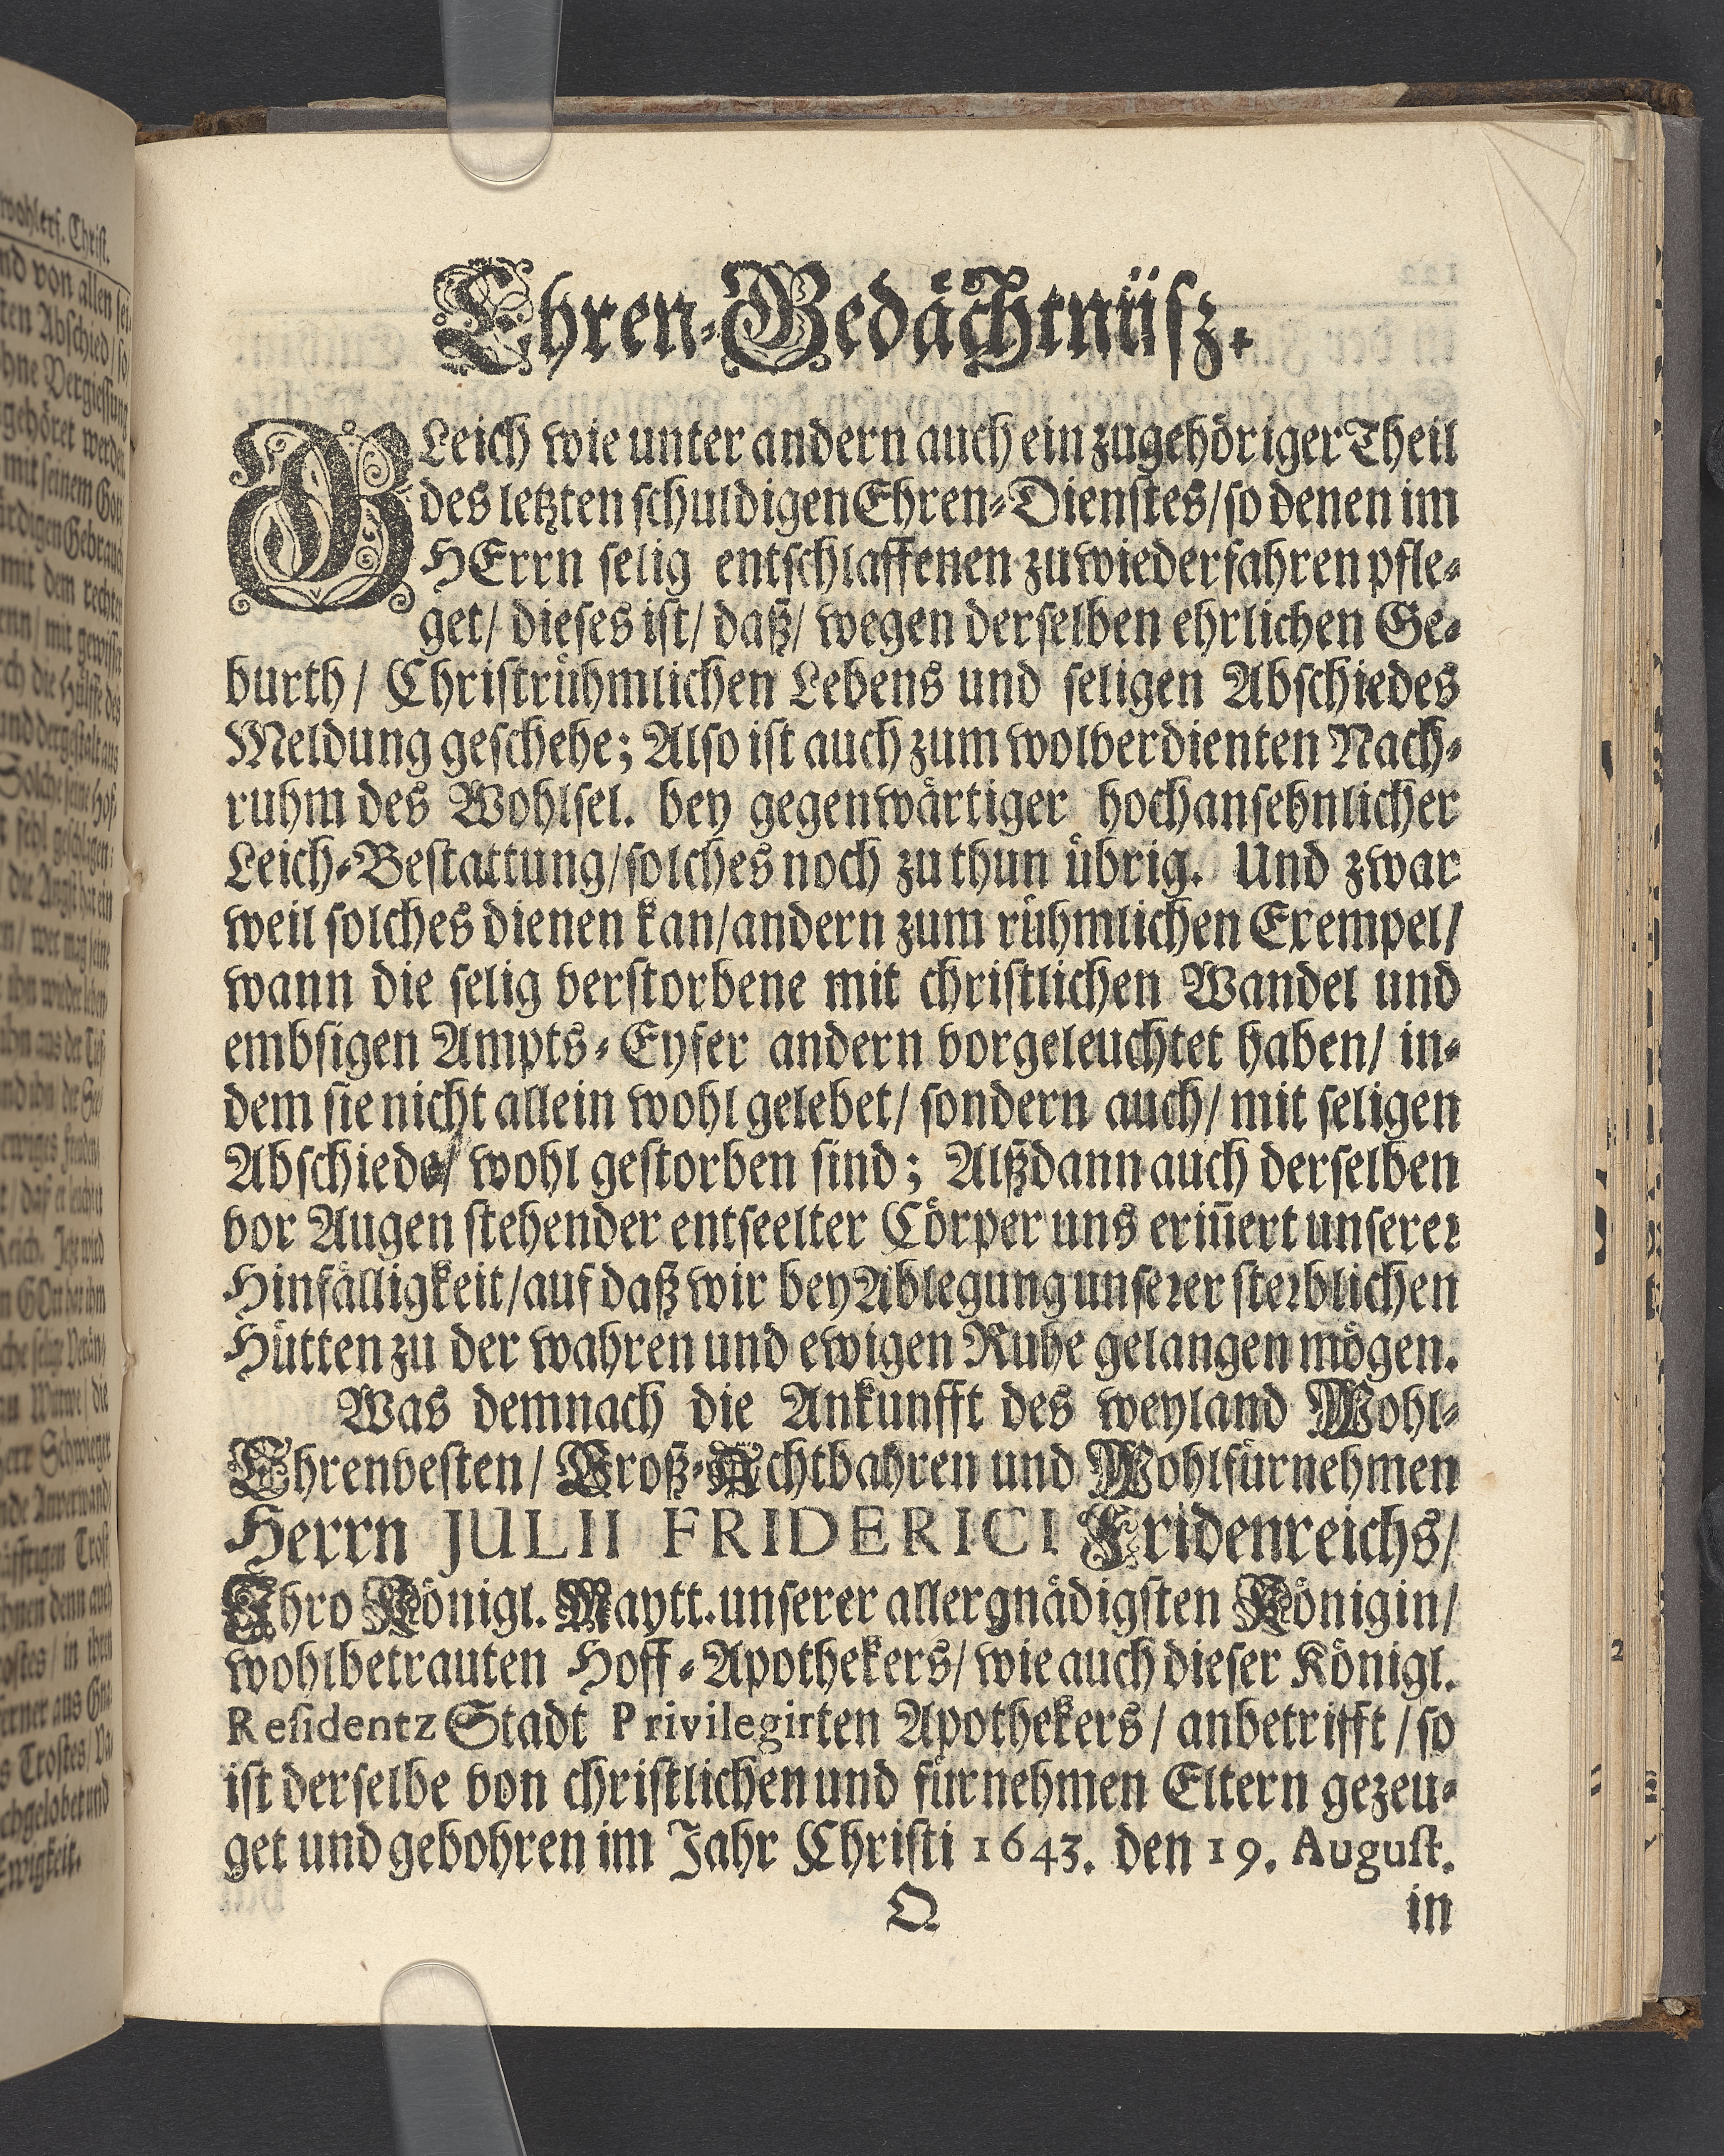 Ehren-Gedächtnüsz.
GLeich wie unter andern auch ein zugehöriger Theil
des letzten schuldigen Ehren-Dienstes/ so denen im
HErrn selig entschlaffenen zu wiederfahren pfle-
get/ dieses ist/ daß/ wegen derselben ehrlichen Ge-
burth/ Christrühmlichen Lebens und seligen Abschiedes
Meldung geschehe; Also ist auch zum wolverdienten Nach-
ruhm des Wohlsel. bey gegenwärtiger hochansehnlicher
Leich-Bestattung/ solches noch zu thun übrig. Und zwar
weil solches dienen kan/ andern zum rühmlichen Exempel/
wann die selig verstorbene mit christlichen Wandel und
embsigen Ampts-Eyfer andern vorgeleuchtet haben/ in-
dem sie nicht allein wohl gelebet/ sondern auch/ mit seligen
Abschiede/ wohl gestorben sind; Alßdann auch derselben
vor Augen stehender entseelter Cörper uns eriñert unserer
Hinfälligkeit/ auf daß wir bey Ablegung unserer sterblichen
Hütten zu der wahren und ewigen Ruhe gelangen mögen.
Was demnach die Ankunfft des weyland Wohl-
Ehrenvesten/ Groß-Achtbahren und Wohlfürnehmen
Herrn JULII FRIDERICI Fridenreichs/
Ihro Königl. Maytt. unserer allergnädigsten Königin/
wohlbetrauten Hoff-Apothekers/ wie auch dieser Königl.
Residentz Stadt Privilegirten Apothekers/ anbetrifft/ so
ist derselbe von christlichen und fürnehmen Eltern gezeu-
get und gebohren im Jahr Christi 1643. den 19. August.
Q
in